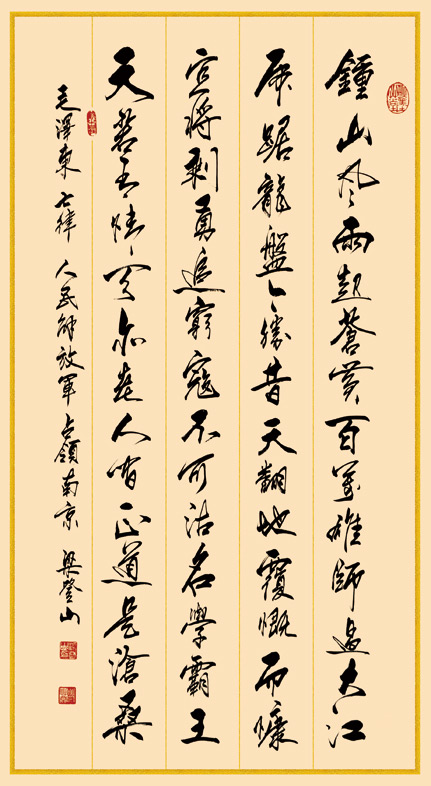 鍾山風雨起蒼黃百萬雄師過大江
虎踞龍盤今勝昔天翻地覆慨而慷
宜將剩勇追窮寇不可沽名學霸王
天若有情天亦老人間正道是滄桑
毛澤東 七律 人民解放軍占領南京 梁登山